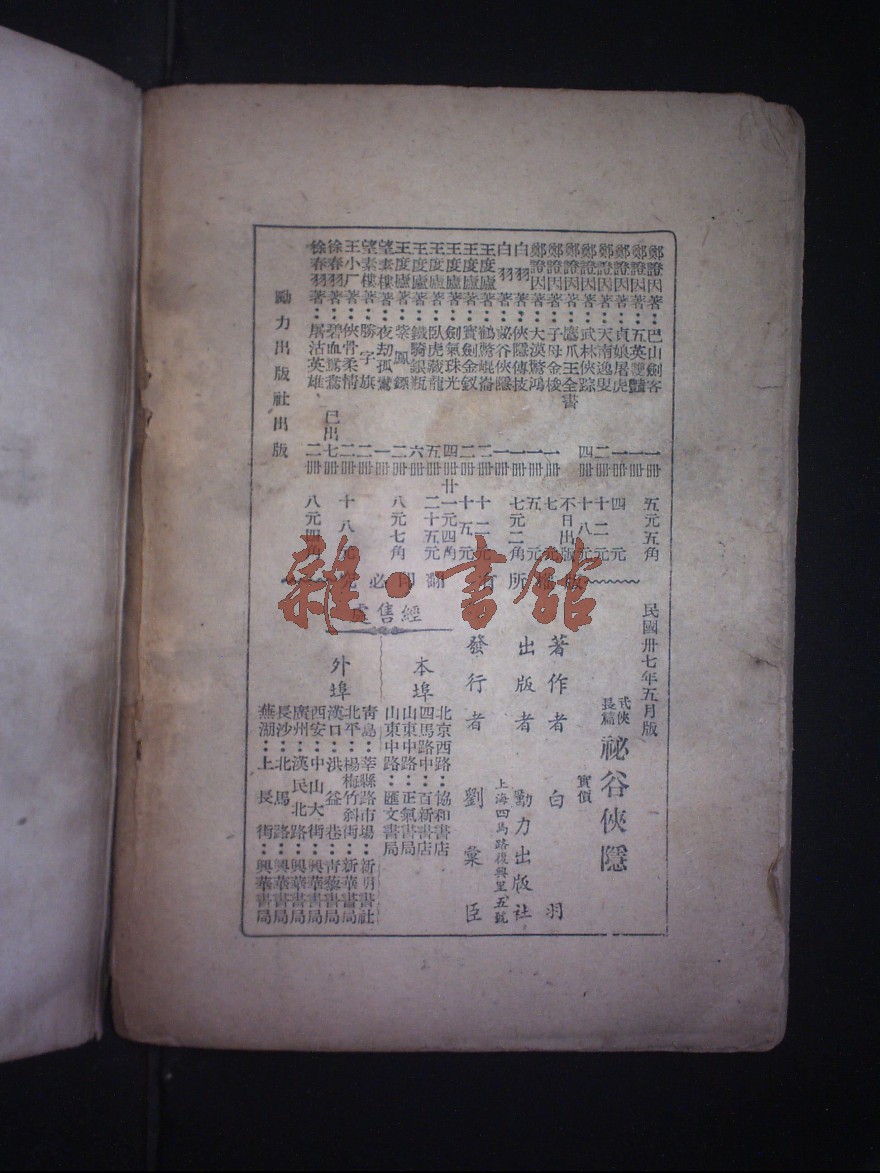 鄭證因著：巴山劍客 一冊 五元五角
鄭證因著：五英雙艷 一冊
鄭證因著：貞娘屠虎 一冊 四元
鄭證因著：天南逸叟 二冊 十二元
鄭證因著：武林俠踪 四冊 十八元
鄭證因著：鷹爪王全書 不日出版
鄭證因著：子母金梭 一冊 七元
鄭證因著：大漠驚鴻 一冊 五元
白羽著：俠隱傳技 一冊 七元二角
白羽著：祕谷俠隱 一冊
王度廬著：鶴驚崐崙 二冊 十二元
王度廬著：寶劍金釵 二冊 十五元
王度廬著：劍氣珠光 四冊 廿一元四角
王度廬著：臥虎藏龍 五冊 二十五元
王度廬著：鐵騎銀瓶 六冊
王度廬著：紫鳳鏢 二冊 八元七角
望素樓著：夜劫孤鸞 一冊
望素樓著：勝字旗 二冊
王小厂著：俠骨柔情 二冊 十八元
徐春羽著：碧血鴛鴦 已出七冊
徐春羽著：屠沽英雄 二冊 八元四角
勵力出版社出版
民國卅七年五月版
武俠長篇 祕谷俠隱
實價
著作者 白羽
出版者 勵力出版社
上海四馬路復興里五號
發行者 劉彙臣
版權所有翻印必究
經售處
本埠
北京西路：協和書店
四馬路中：百新書店
山東中路：正氣書局
山東中路：匯文書局
外埠
青島：莘縣路市場：新明書社
北平：楊梅竹斜街：新華書局
漢口：洪益巷：青黎書局
西安：中山大街：興華書局
廣州：漢民北路：興華書局
長沙：北馬路：興華書局
蕪湖：上長街：興華書局
雜·書館